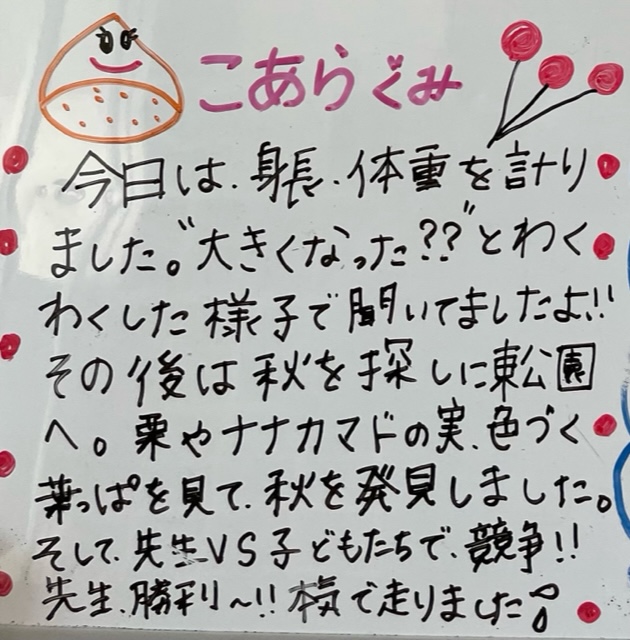 こあらぐみ
今日は、身長、体重を計り
ました。"大きくなった??"とわく
わくした様子で聞いてましたよ!!
その後は秋を探しに東公園
へ。栗やナナカマドの実、色づく
葉っぱを見て、秋を発見しました。
そして、先生VS子どもたちで、競争!!
先生、勝利〜!!本気で走りました